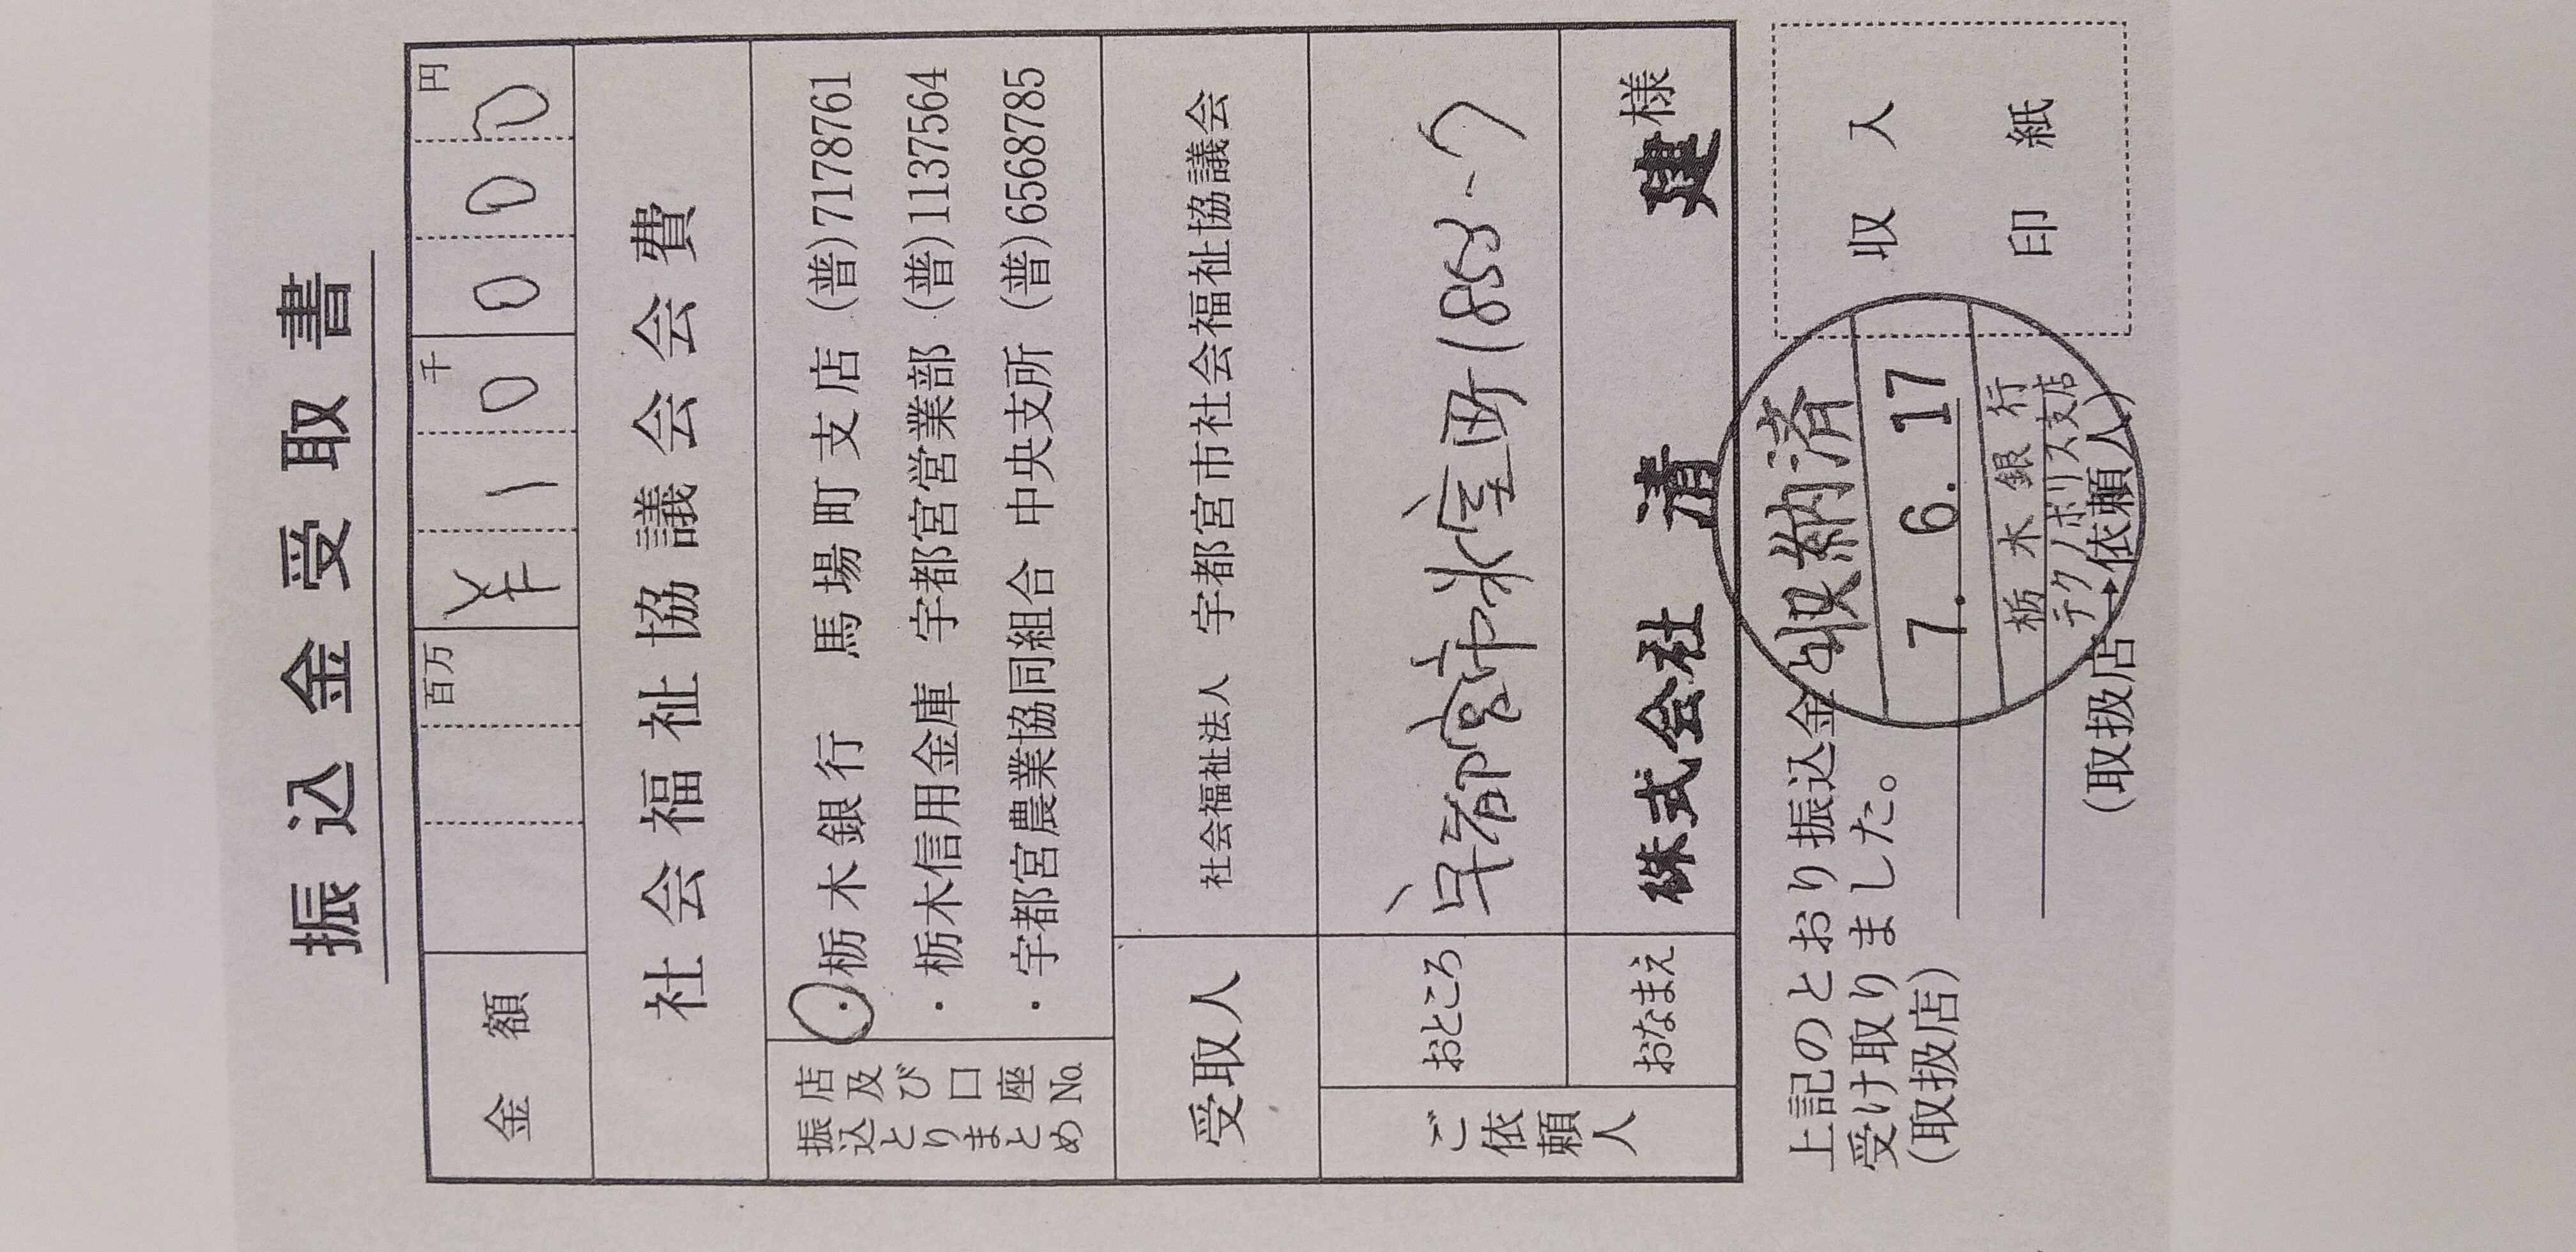 振込金受取書
金額 百万 千 円
¥10000
社会福祉協議会会費
振込店とりまとめ及び口座No.
・栃木銀行 馬場町支店 (普)7178761
・栃木信用金庫 宇都宮営業部 (普)1137564
・宇都宮農業協同組合 中央支所 (普)6568785
受取人 社会福祉法人 宇都宮市社会福祉協議会
ご依頼人
おところ 宇都宮市氷室町1858-7
おなまえ 株式会社 清建 様
上記のとおり振込金を
受け取りました。
(取扱店)
収納済
7. 6. 17
栃木銀行
テクノポリス支店
(取扱店→依頼人)
収入
印紙